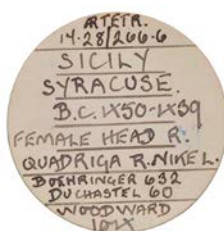 ARTETR.
14.28/266.6
SICILY
SYRACUSE.
B.C. 1X50-1X39
FEMALE HEAD R.
QUADRIGA R. NIKE L.
BOEHRINGER 632
DUCHASTEL 60
WOODWARD